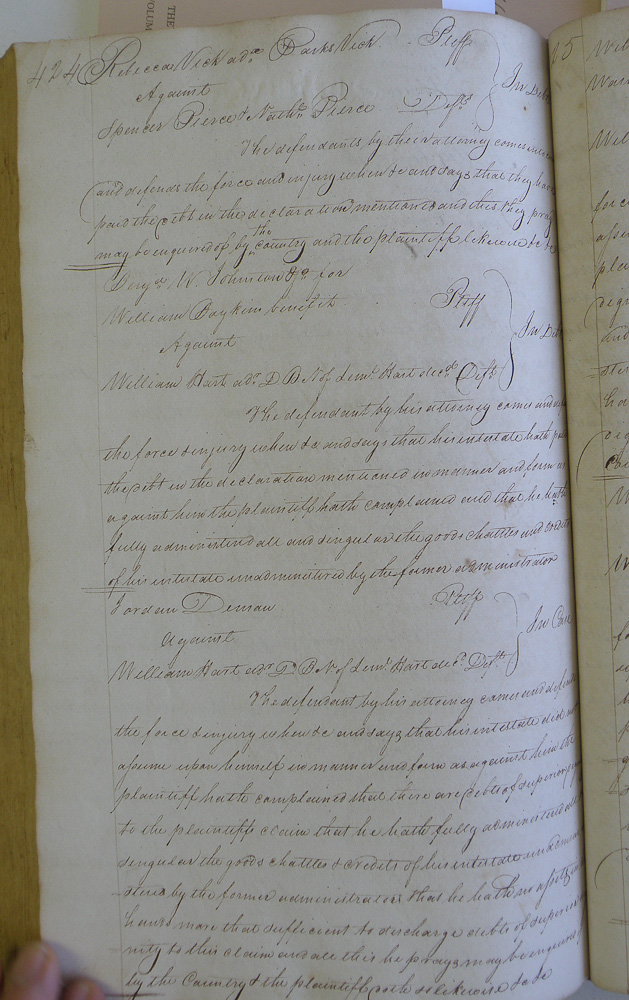 THE
VOLUM
424 Rebecca Vick adx Parks Vick. Pltff
Against
In Debt
Spencer Pierce & Nathn Pierce Defts
The defendants by their attorney comes
and defends the force and injury when &c and says that they have
paid the debt in the declaration mentioned and this they pray
may be enquired of by the country and the plaintiff likewise &c &c
Benjn W. Johnston &c for
William Boykin benefit Pltff
Against
In Debt
William Hart adr D B N of Leml Hart decd Deft
The defendant by his attorney comes and
the force & injury when &c and says that his intestate hath
the debt in the declaration mentioned in manner and form as
against him the plaintiff hath complained and that he hath
fully administered all and singular the goods chattles and credits
of his intestate unadministered by the former administrator
Jordan Denson Pltff
Against
In Case
William Hart adr D B N of Leml Hart decd Deft
The defendant by his attorney comes and defends
the force & injury when &c and says that his intestate did not
assume upon himself in manner and form as against him the
plaintiff hath complained that there are debts of superior
to the plaintiffs claim that he hath fully administered all
singular the goods chattles & credits of his intestate
by the former administrator that he hath no assets in
hands more that sufficient to discharge debts of superior
nity to this claim and all this he prays may be enquired
by the Country & the plaintiff doth likewise &c &c